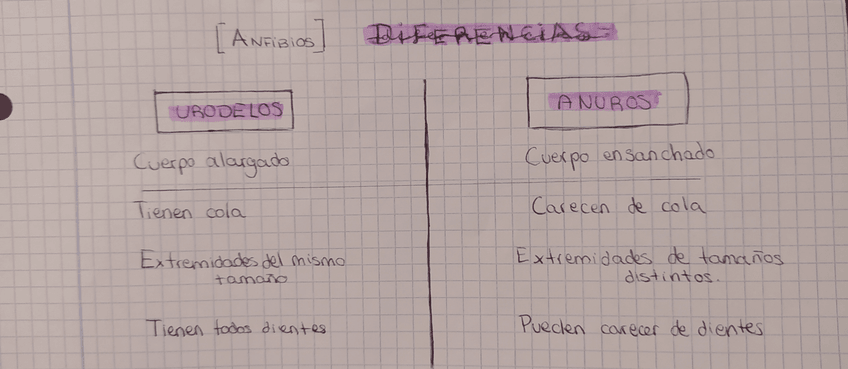 [ANFIBIOS] DIFERENCIAS
URODELOS
ANUROS
Cuerpo alargado
Cuerpo ensanchado
Tienen cola
Carecen de cola
Extremidades del mismo
tamaño
Extremidades de tamaños
distintos.
Tienen todos dientes
Pueden carecer de dientes